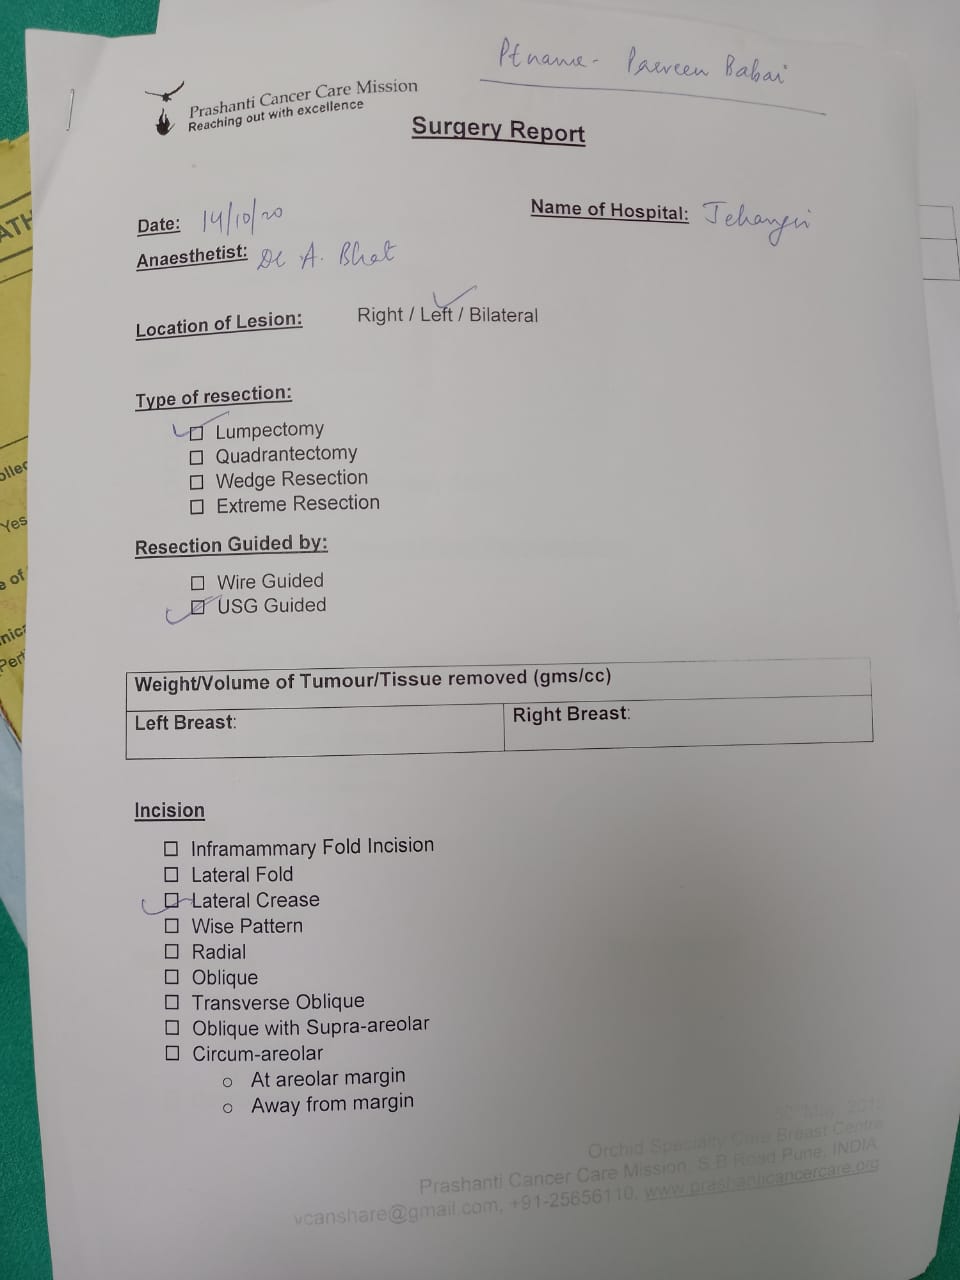 Ptname - Parveen Babai
Prashanti Cancer Care Mission
Reaching out with excellence
Surgery Report
Date: 14/10/20
Name of Hospital: Jehangir
Anaesthetist: Dr A. Bhat
Location of Lesion: Right / Left / Bilateral
Type of resection:
Lumpectomy
Quadrantectomy
Wedge Resection
Extreme Resection
Resection Guided by:
Wire Guided
USG Guided
Weight/Volume of Tumour/Tissue removed (gms/cc)
Left Breast: Right Breast:
Incision
Inframammary Fold Incision
Lateral Fold
Lateral Crease
Wise Pattern
Radial
Oblique
Transverse Oblique
Oblique with Supra-areolar
Circum-areolar
At areolar margin
Away from margin
Orchid Specialty Care Breast Centre
Prashanti Cancer Care Mission, S B Road Pune, INDIA
vcanshare@gmail.com, +91-25656110, www.prashanticancercare.org